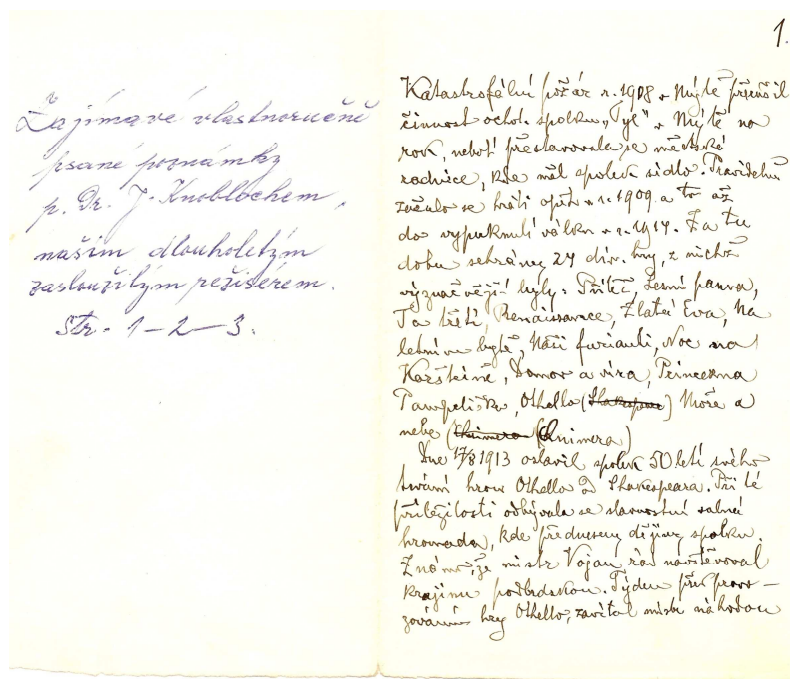 Zajímavé vlastnoručně
psané poznámky
p. Dr. J. Knoblochem,
naším dlouholetým
zasloužilým režisérem.
Str. 1–2–3.
1.
Katastrofální požár r. 1908 v Mýtě přerušil
činnost ochot. spolku „Tyl“ v Mýtě na
rok, neboť přestavovala se městská
radnice, kde měl spolek sídlo. Pravidelně
začalo se hráti opět v r. 1909 a to až
do vypuknutí války v r. 1914. Za tu
dobu sehrány 24 div. hry, z nichž
význačnější byly: Přítěž, Lesní panna,
Ta třetí, Renaissance, Zlatá Eva, Na
letním bytě, Naši furianti, Noc na
Karšteině, Domov a víra, Princezna
Pampeliška, Othello (Shakespear) Moře a
nebe (Quimera)
Dne 17/8 1913 oslavil spolek 50 letí svého
trvání hrou Othello od Shakespeara. Při té
příležitosti odbývala se slavnostní valná
hromada, kde předneseny dějiny spolku.
Známo, že mistr Vojan rád navštěvoval
krajinu podbrdskou. Týden před provo–
zováním hry Othello, zavítal mistr náhodou